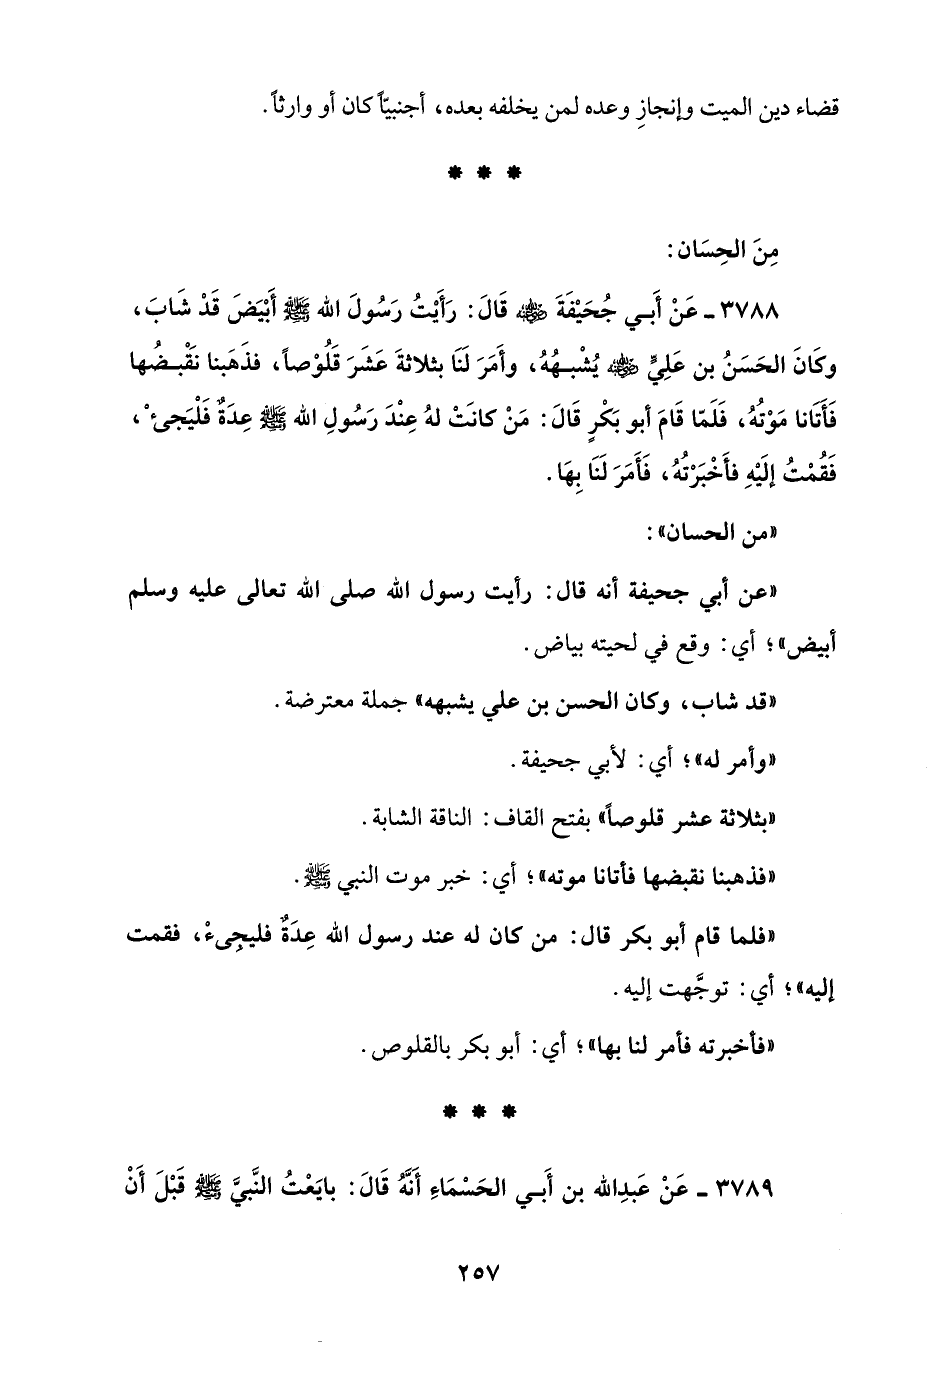 قضاء دين الميت وإنجازِ وعده لمن يخلفه بعده، أجنبيّاً كان أو وارثاً.
* * *
مِنَ الحِسَان:
٣٧٨٨ ـ عَنْ أَبي جُحَيْفَةَ ﵁ قَالَ: رَأَيْتُ رَسُولَ الله ﷺ أَبْيَضَ قَدْ شَابَ،
وكَانَ الحَسَنُ بن عَلِيٍّ ﵁ يُشْبِهُهُ، وأَمَرَ لَنَا بثلاثةَ عَشَرَ قَلُوْصاً، فذَهَبنا نَقْبضُها
فَأَتَانا مَوْتُهُ، فَلَمّا قَامَ أبو بَكْرٍ قَالَ: مَنْ كانَتْ لهُ عِنْدَ رَسُولِ الله ﷺ عِدَةٌ فَلْيَجىءْ،
فَقُمْتُ إلَيْهِ فأَخْبَرْتُهُ، فَأَمَرَ لَنَا بِهَا.
«من الحسان»:
«عن أبي جحيفة أنه قال: رأيت رسول الله صلى الله تعالى عليه وسلم
أبيض»؛ أي: وقع في لحيته بياض.
«قد شاب، وكان الحسن بن علي يشبهه» جملة معترضة.
«وأمر له»؛ أي: لأبي جحيفة.
«بثلاثة عشر قلوصاً» بفتح القاف: الناقة الشابة.
«فذهبنا نقبضها فأتانا موته»؛ أي: خبر موت النبي ﷺ.
«فلما قام أبو بكر قال: من كان له عند رسول الله عِدَةٌ فليجِىءْ، فقمت
إليه»؛ أي: توجَّهت إليه.
«فأخبرته فأمر لنا بها»؛ أي: أبو بكر بالقلوص.
* * *
٣٧٨٩ ـ عَنْ عَبدِالله بن أَبي الحَسْمَاءِ أَنَّهُ قَالَ: بايَعْتُ النَّبيَّ ﷺ قَبْلَ أَنْ
٢٥٧